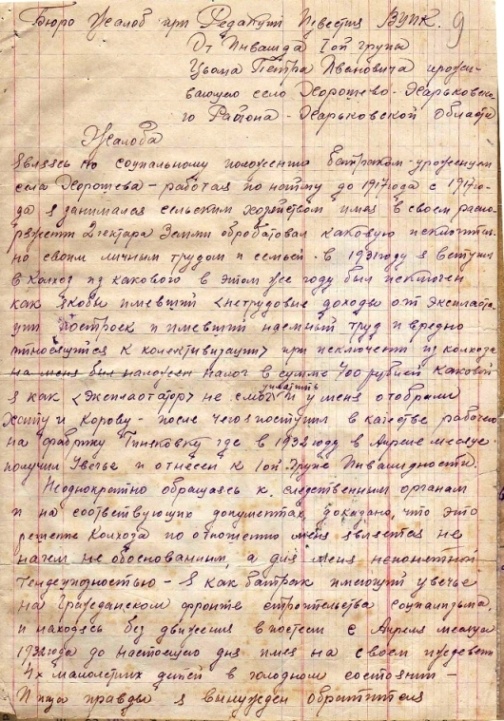 Бюро Жалоб при Редакции Известия ВУЦК. 9
От Инвалида Iой группы
Цьома Петра Ивановича прожи-
вающего село Хорошево-Харьковско-
го Района-Харьковской области
Жалоба
Являясь по социальному положению батраком-уроженцем
села Хорошева - работая по найму до 1917 года с 1917 го-
да я занимался сельским хозяйством имея в своем распо-
ряжении 2 гектара Земли обробатовал каковую исключитель-
но своим личным трудом и семьей. в 1931 году я вступил
в Колхоз из какового в этом же году был исключен
как якобы имевший <нетрудовие доходы от эксплоата-
ции построек и имевший наемный труд и вредно
относящийся к колективизации> при исключении из колхоза
на меня был наложен налог в сумме 400 рублей каковой
я как <эксплоататор> не смог уплатить и у меня отобрали
Хату и Корову - после чего я поступил в качестве рабочего
на фабрику где в 1932 году в Апреле месяце
получил увечье и отнесен к Iой Групе Инвалидности.
Неоднократно обращаясь к следственным органам
и на соответствующих документах доказано, что это
решение Колхоза по отношению меня является не
на чем не обоснованным, а для меня непонятной
тендециозностью - я как батрак имеющий увечье
на Гражданском фронте строительства социализма
и находясь без движения в постели с Апреля месяца
1932 года до настоящего дня имея на своем иждевении
4х малолетних дитей в голодном состоянии -
Ища правды я вынужден обратиться